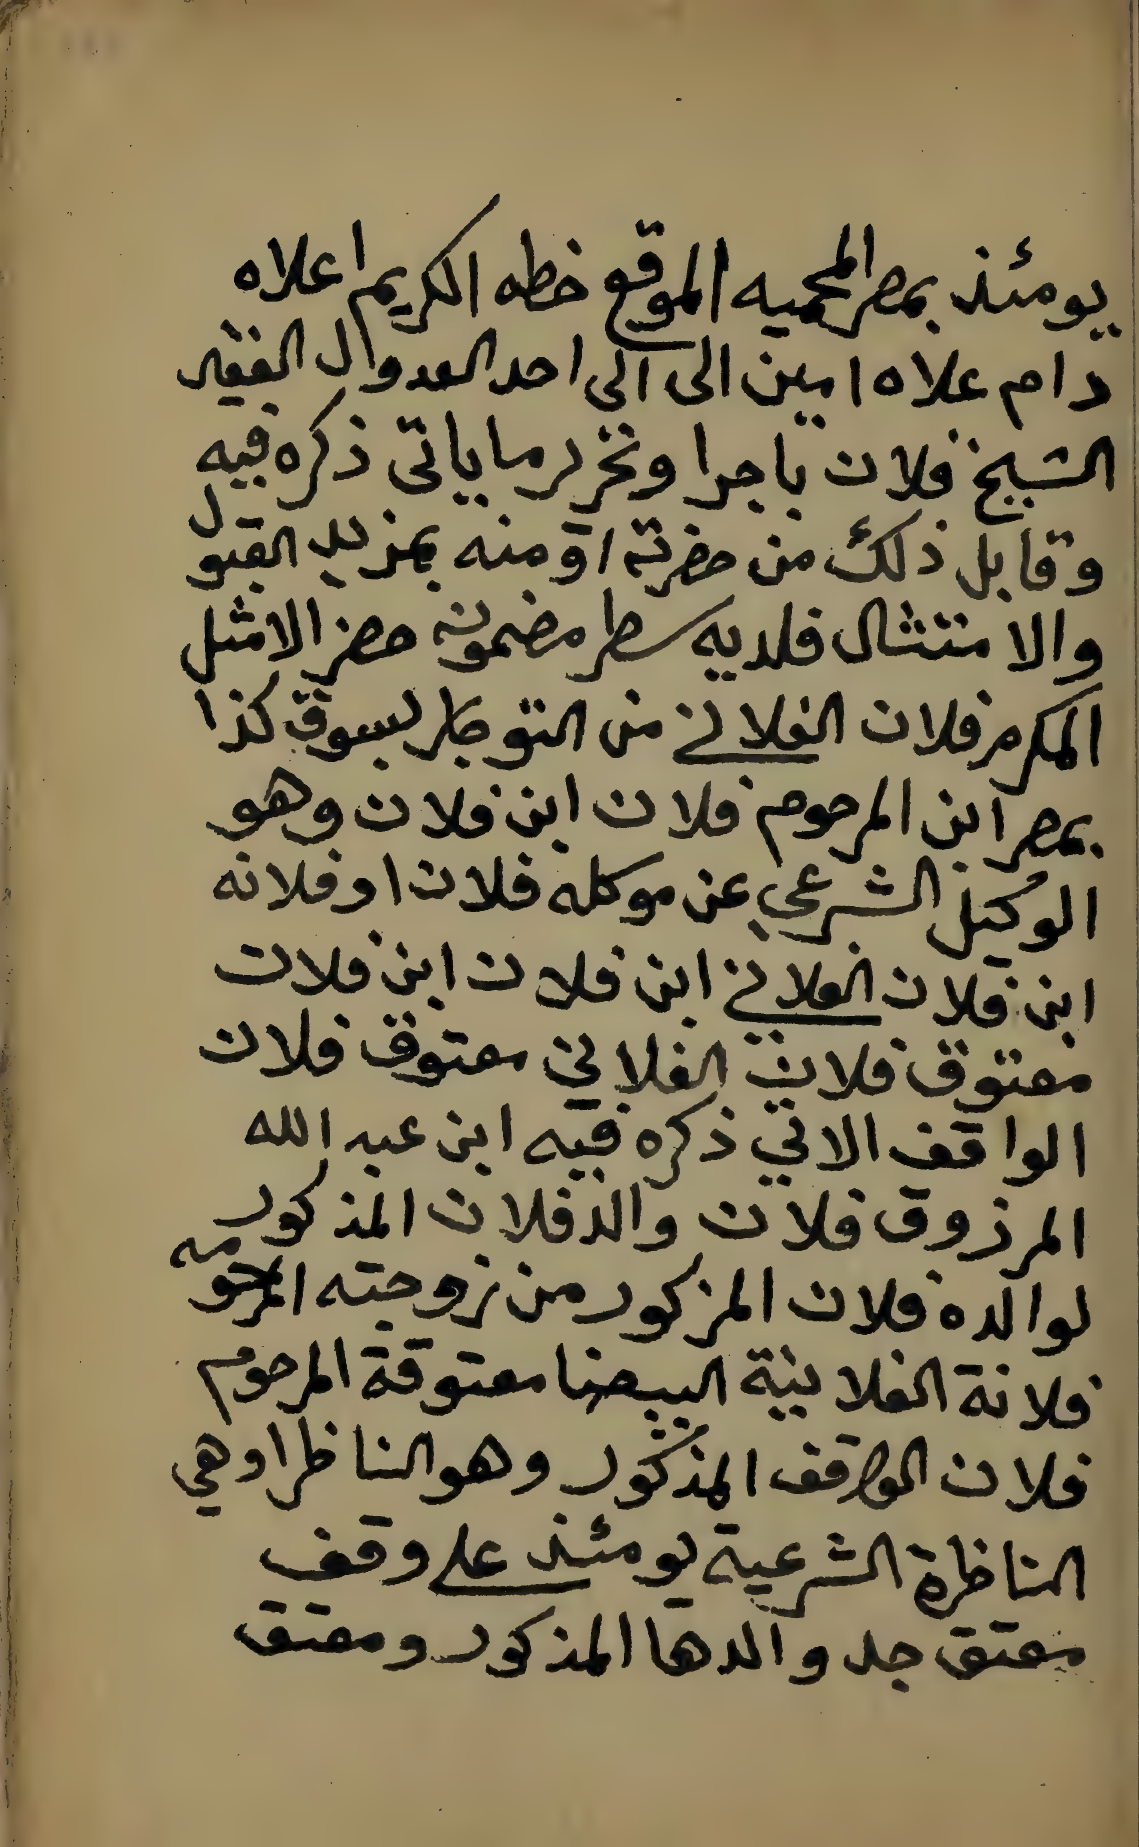 يومئذ بمصر المحميه الموقع خطه الكريم اعلاه
دام علاه امين الى الى احد العدوال الفقير
الشيخ فلان باجرا وتحرير ما ياتى ذكره فيه
وقابل ذلك من حضرته او منه بمزيد القبول
والامتثال فلديه سطر مضمونه حضر الامثل
المكرم فلان الفلاني من التوجار بسوق كذا
بمصر ابن المرحوم فلان ابن فلان وهو
الوكيل الشرعي عن موكله فلان او فلانه
ابن فلان الفلاني ابن فلان ابن فلان
معتوق فلان الفلاني معتوق فلان
الواقف الاتي ذكره فيه ابن عبد الله
المرزوق فلان والد فلان المذكور
لوالده فلان المزكور من زوجته المرحومه
فلانة الفلانية البيضا معتوقة المرحوم
فلان الواقف المذكور وهو الناظر او هي
الناظرة الشرعية يومئذ على وقف
معتق جد والدها المذكور ومعتق